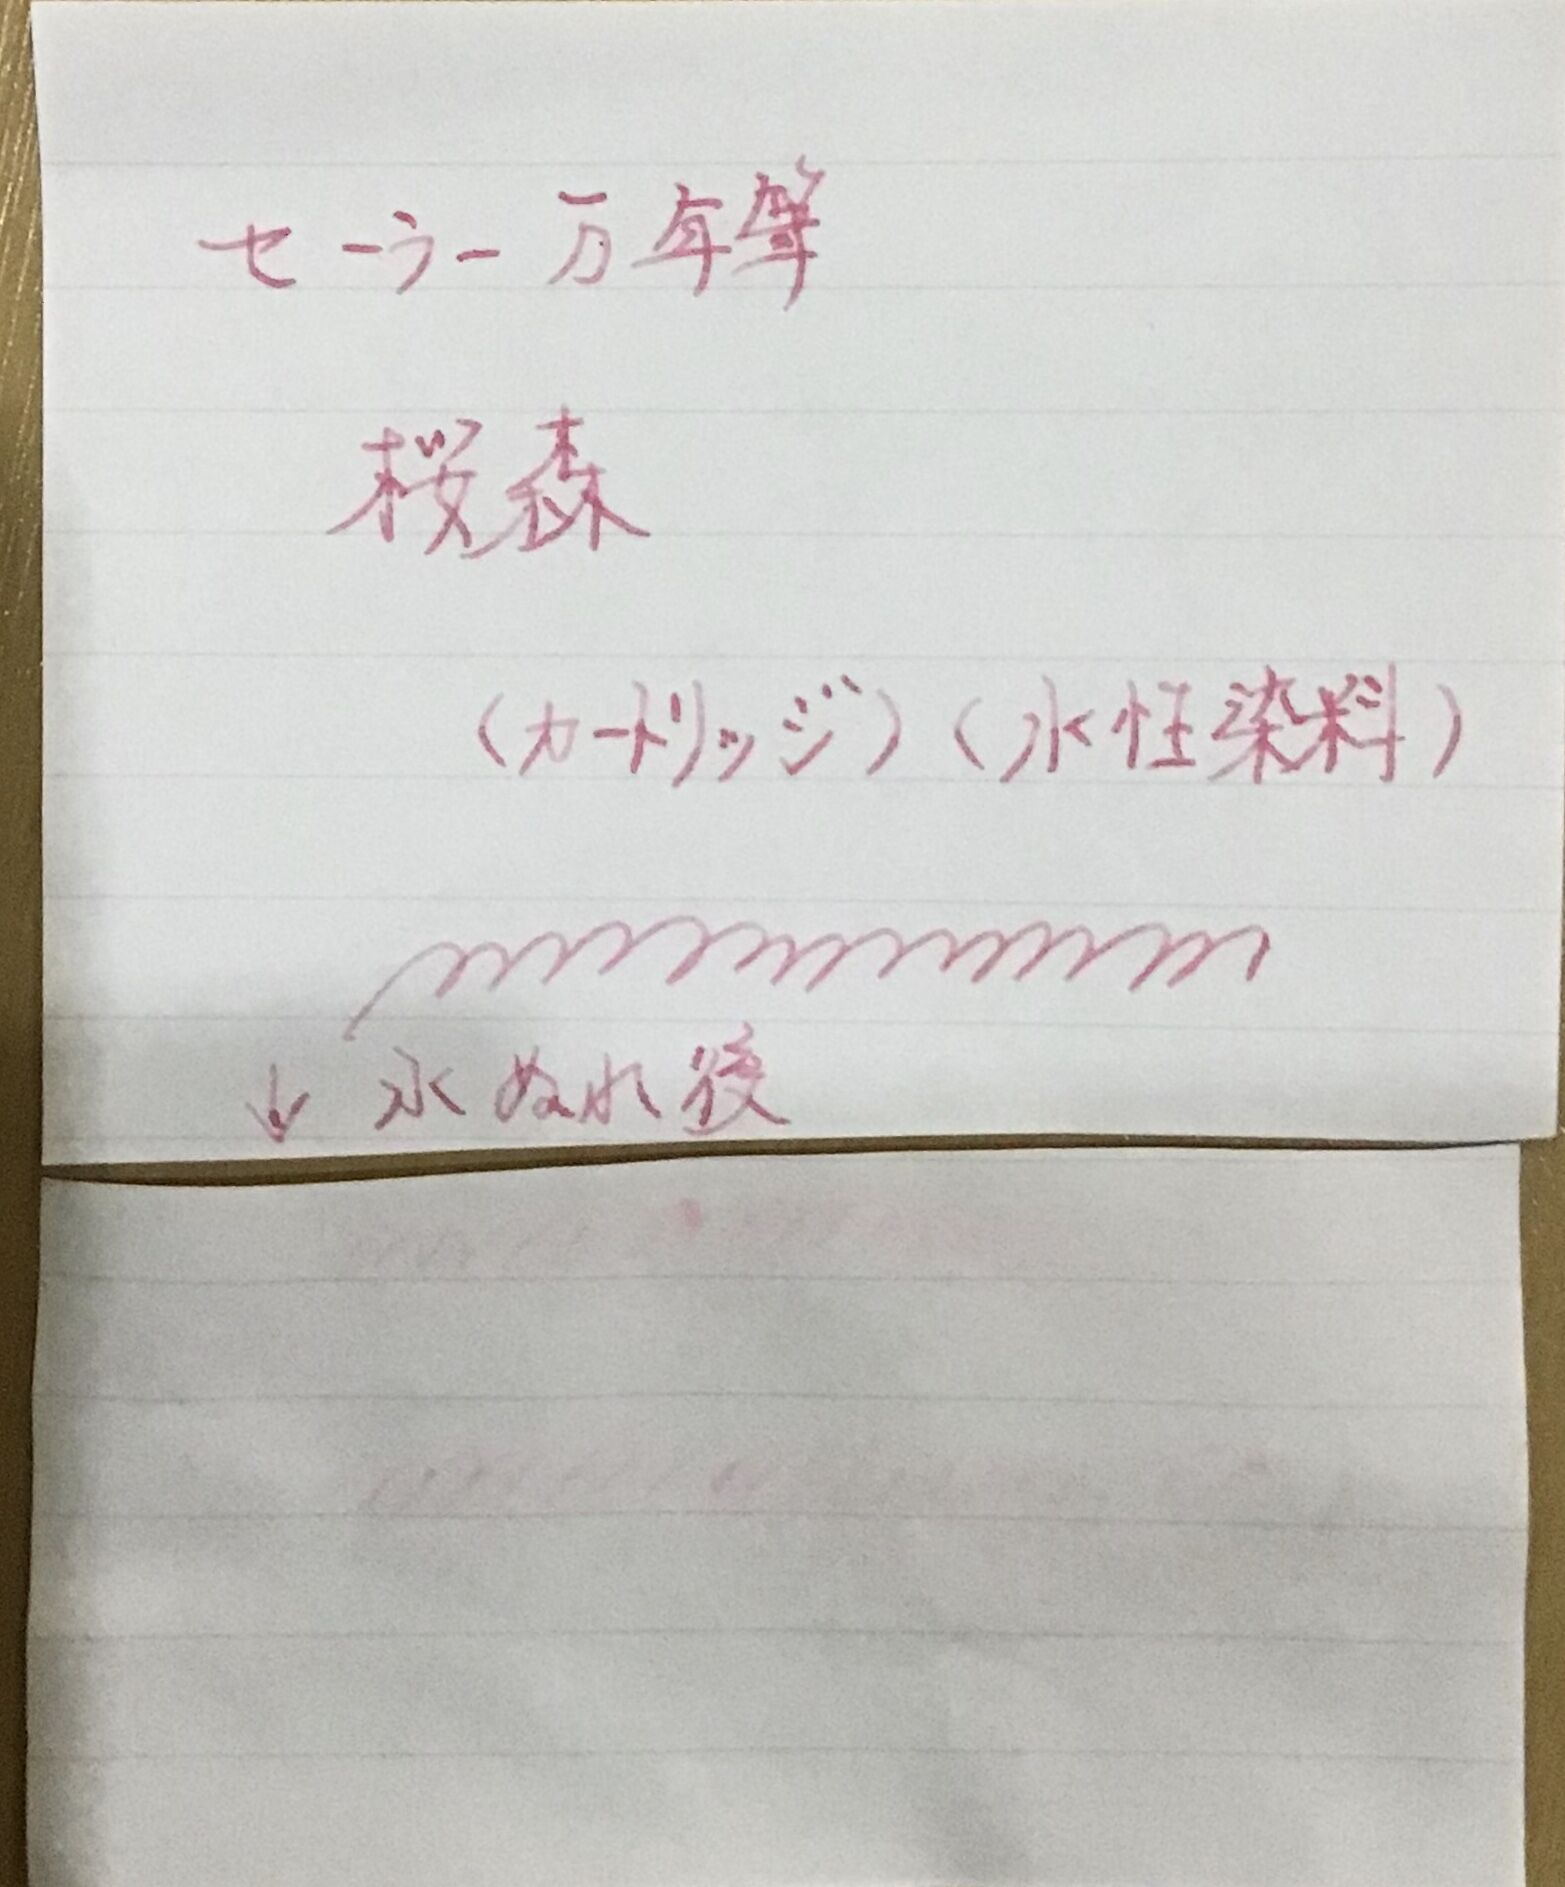 セーラー万年筆
桜森
(カードリッジ)(水性染料)
↓水ぬれ後